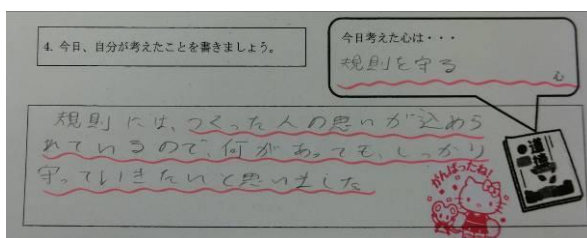 4. 今日、自分が考えたことを書きましょう。
今日考えた心は・・・
規則を守る
心
規則には、つくった人の思いが込めら
れているので、何があっても、しっかり
守っていきたいと思いました
がんばったね!
道徳